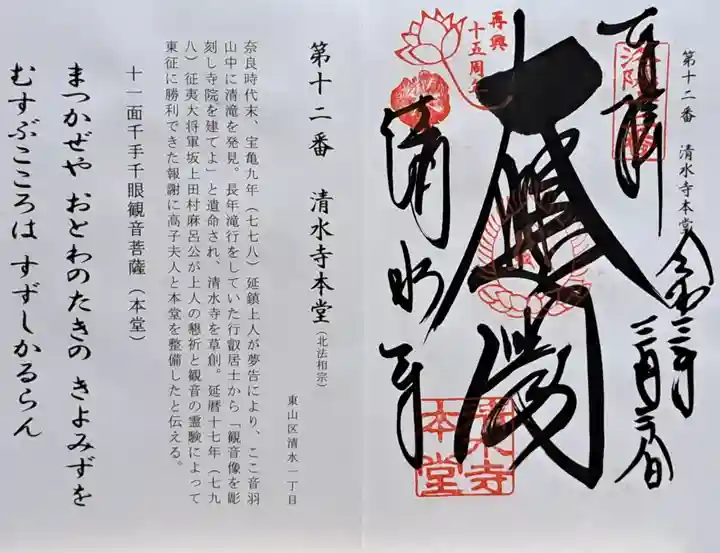 第十二番 清水寺本堂
奉拝
洛陽
令和三年
三月三日
再興
十五周年
大悲閣
清水寺
清水寺
本堂
第十二番 清水寺本堂(北法相宗)
東山区清水一丁目
奈良時代末、宝亀九年(七七八)延鎮上人が夢告により、ここ音羽
山中に清滝を発見。長年滝行をしていた行叡居士から「観音像を彫
刻し寺院を建てよ」と遺命され、清水寺を草創。延暦十七年(七九
八)征夷大将軍坂上田村麻呂公が上人の懇祈と観音の霊験によって
東征に勝利できた報謝に高子夫人と本堂を整備したと伝える。
十一面千手千眼観音菩薩(本堂)
まつかぜや おとわのたきの きよみずを
むすぶこころは すずしかるらん